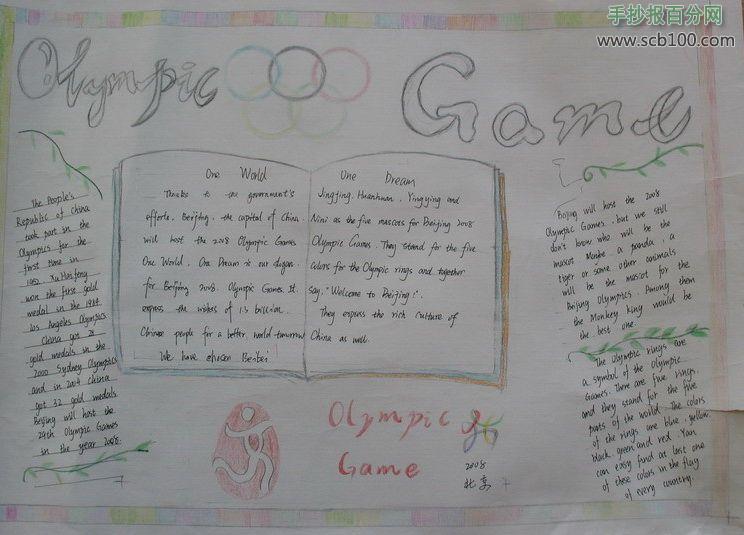 手抄报百分网
www.scb100.com
Olympic Game
The People's
Republic of China
took part in the
Olympics for the
first time in
1952. Xu Haifeng
won the first gold
medal in the 1984
Los Angeles Olympics
China got 28
gold medals in the
2000 Sydney Olympics
and in 2004 China
got 32 gold medals.
Beijing will host the
29th Olympic Games
in the year 2008.
One World
Thanks to the government's
efforts, Beijing, the capital of China.
will host the 2008 Olympic Games
One World, One Dream is our slogan
for Beijing 2008. Olympic Games. It
express the wishes of 1.3 billion
Chinese people for a better world tomorrow
We have chosen Beibei
One Dream
Jingjing, Huanhuan, Yingying and
Nini as the five mascots for Beijing 2008
Olympic Games. They stand for the five
colors for the Olympic rings and together
say, "Welcome to Beijing!".
They express the rich culture of
China as well.
Beijing will host the 2008
Olympic Games, but we still
don't know who will be the
mascot. Maybe a panda, a
tiger or some other animals
will be the mascot for the
Beijing Olympics. Among them
the Monkey king would be
the best one.
The Olympic rings are
a symbol of the Olympic
Games. There are five rings
and they stand for the five
parts of the world. The colors
of the rings are blue, yellow,
black, green and red. You
can easy find at last one
of these colors in the flag
of every country.
Olympic
Game
2008
北京